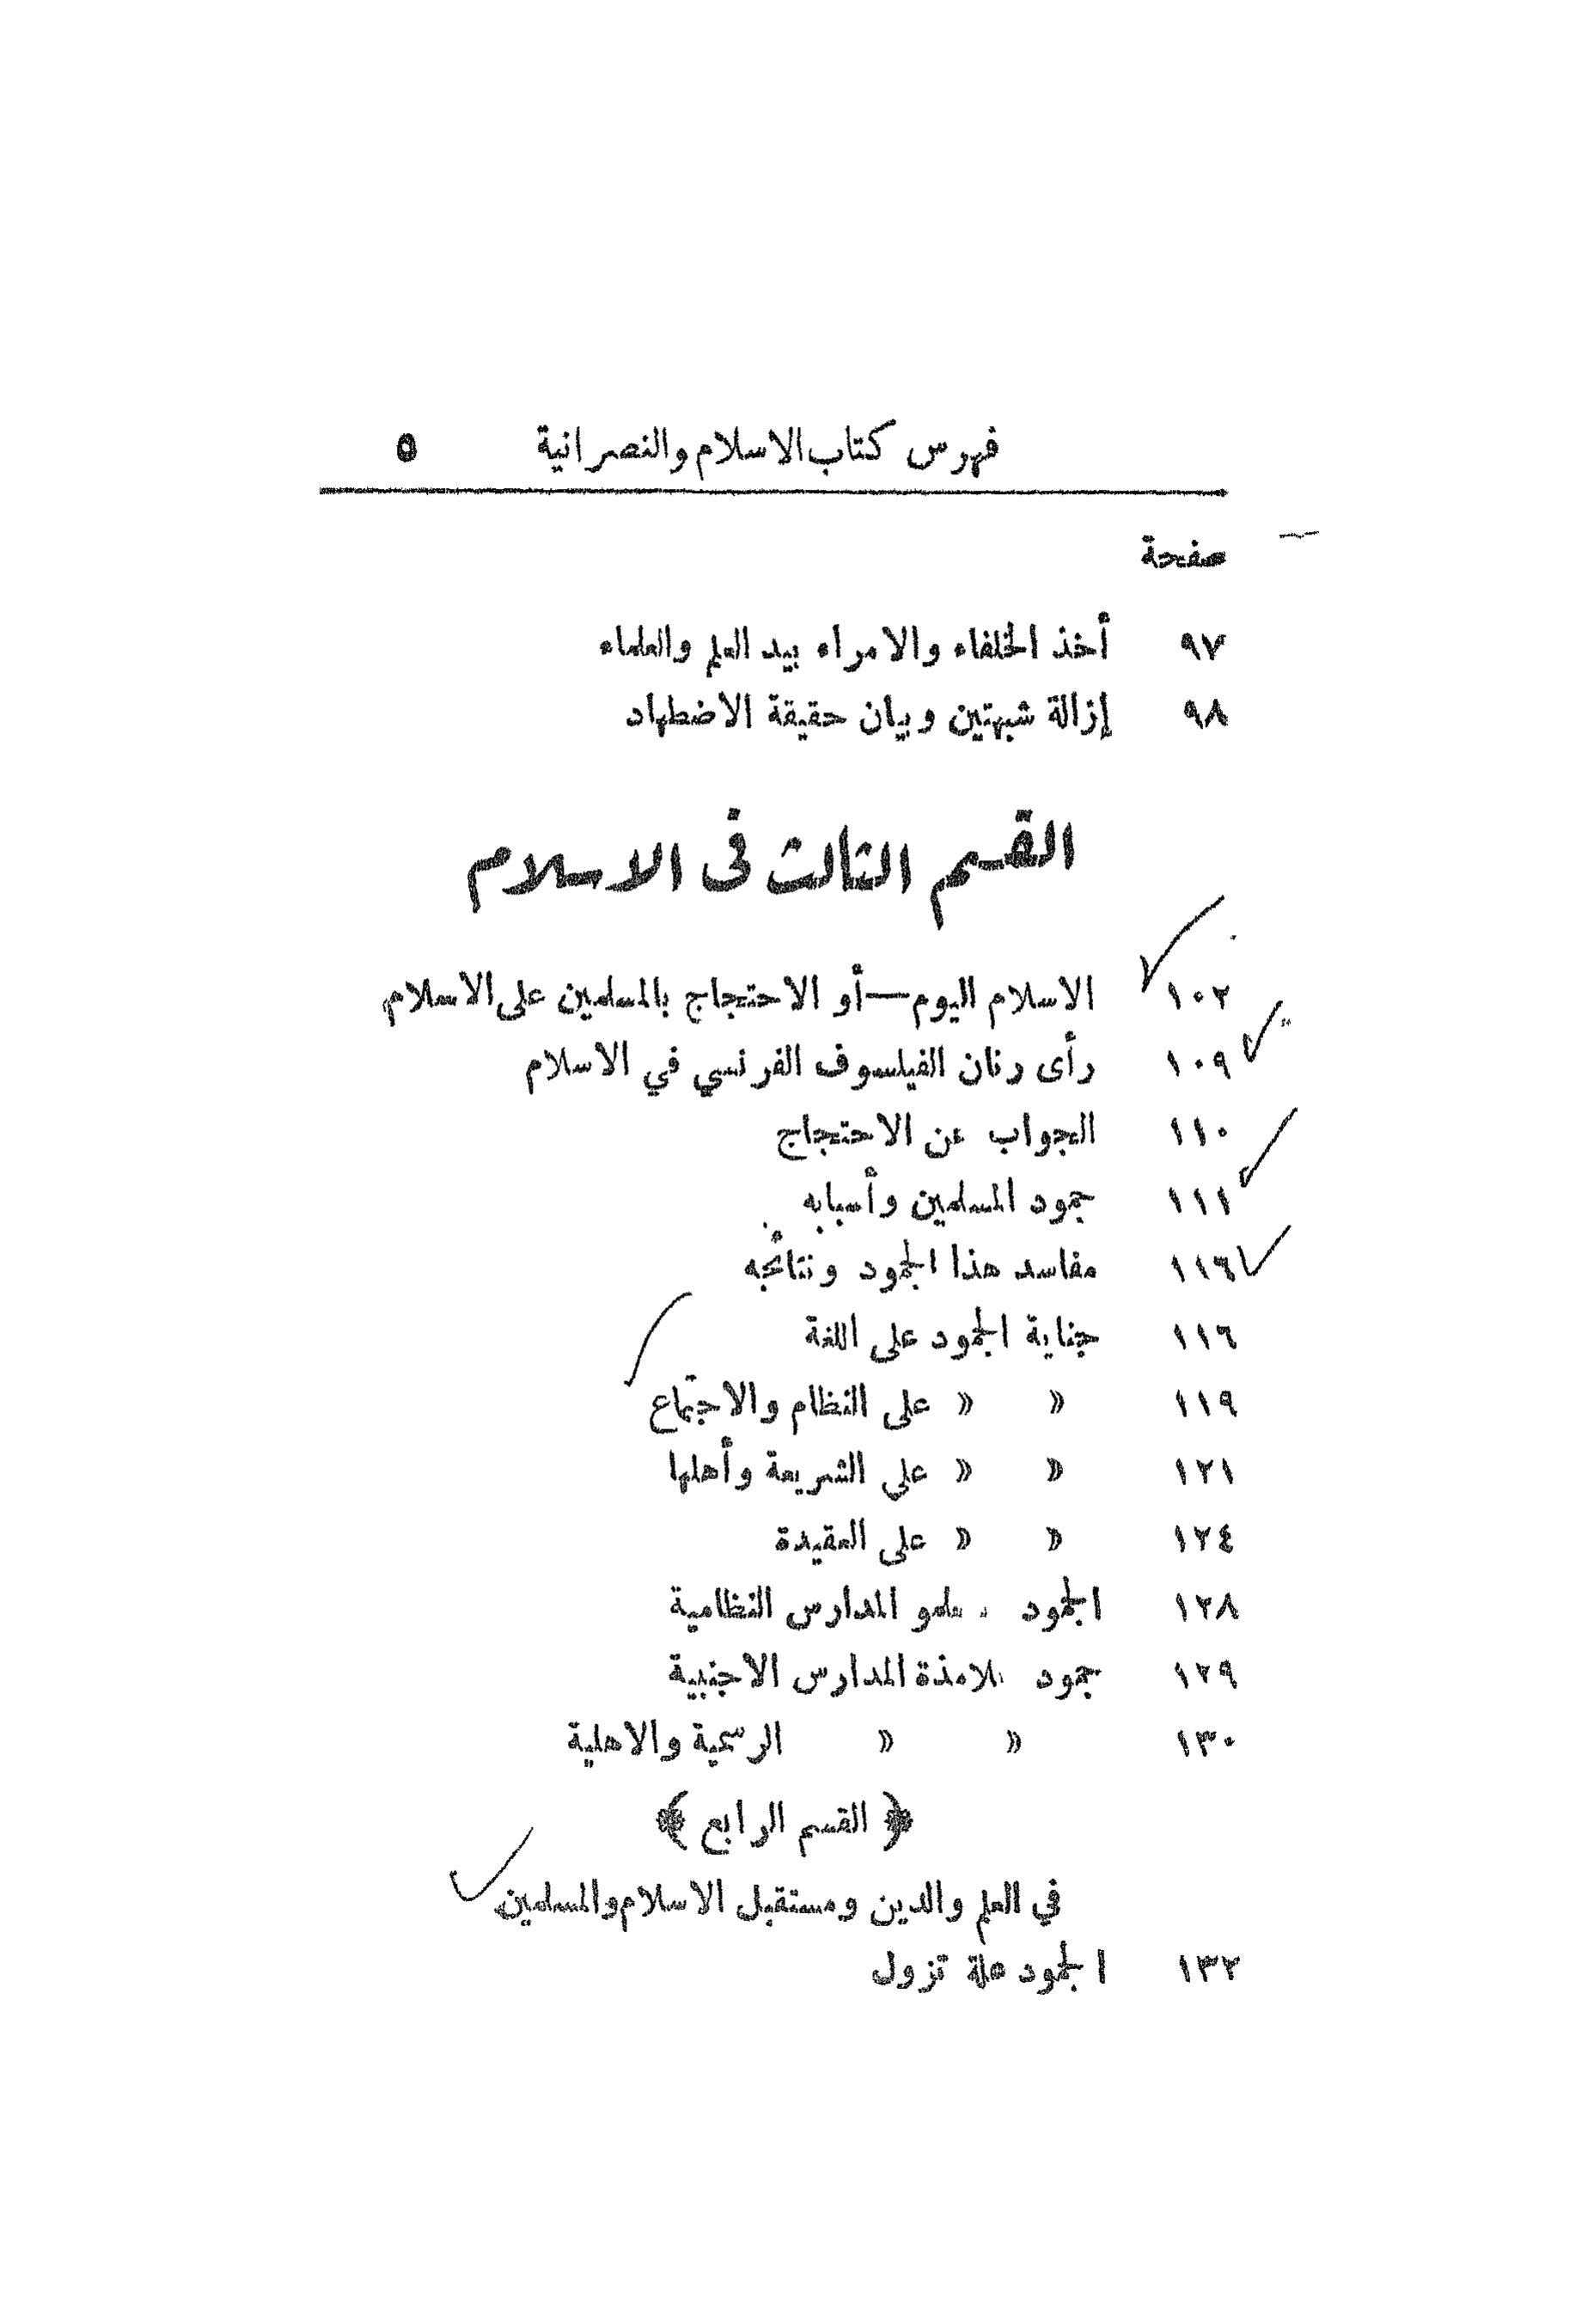 فهرس كتاب الاسلام والنصرانية ٥
صفحة
٩٧ أخذ الخلفاء والامراء بيد العلم والعلماء
٩٨ إزالة شبهتين وبيان حقيقة الاضطهاد
القسم الثالث فى الاسلام
١٠٢ الاسلام اليوم—أو الاحتجاج بالمسلمين على الاسلام
١٠٩ رأى رنان الفيلسوف الفرنسي في الاسلام
١١٠ الجواب عن الاحتجاج
١١١ جمود المسلمين وأسبابه
١١٦ مفاسد هذا الجمود ونتائجه
١١٦ جناية الجمود على اللغة
١١٩ » » على النظام والاجتماع
١٢١ » » على الشريعة وأهلها
١٢٤ » » على العقيدة
١٢٨ الجمود المدارس النظامية
١٢٩ جمود تلامذة المدارس الاجنبية
١٣٠ » » الرسمية والاهلية
﴿ القسم الرابع ﴾
في العلم والدين ومستقبل الاسلام والمسلمين
١٣٢ الجمود علة تزول